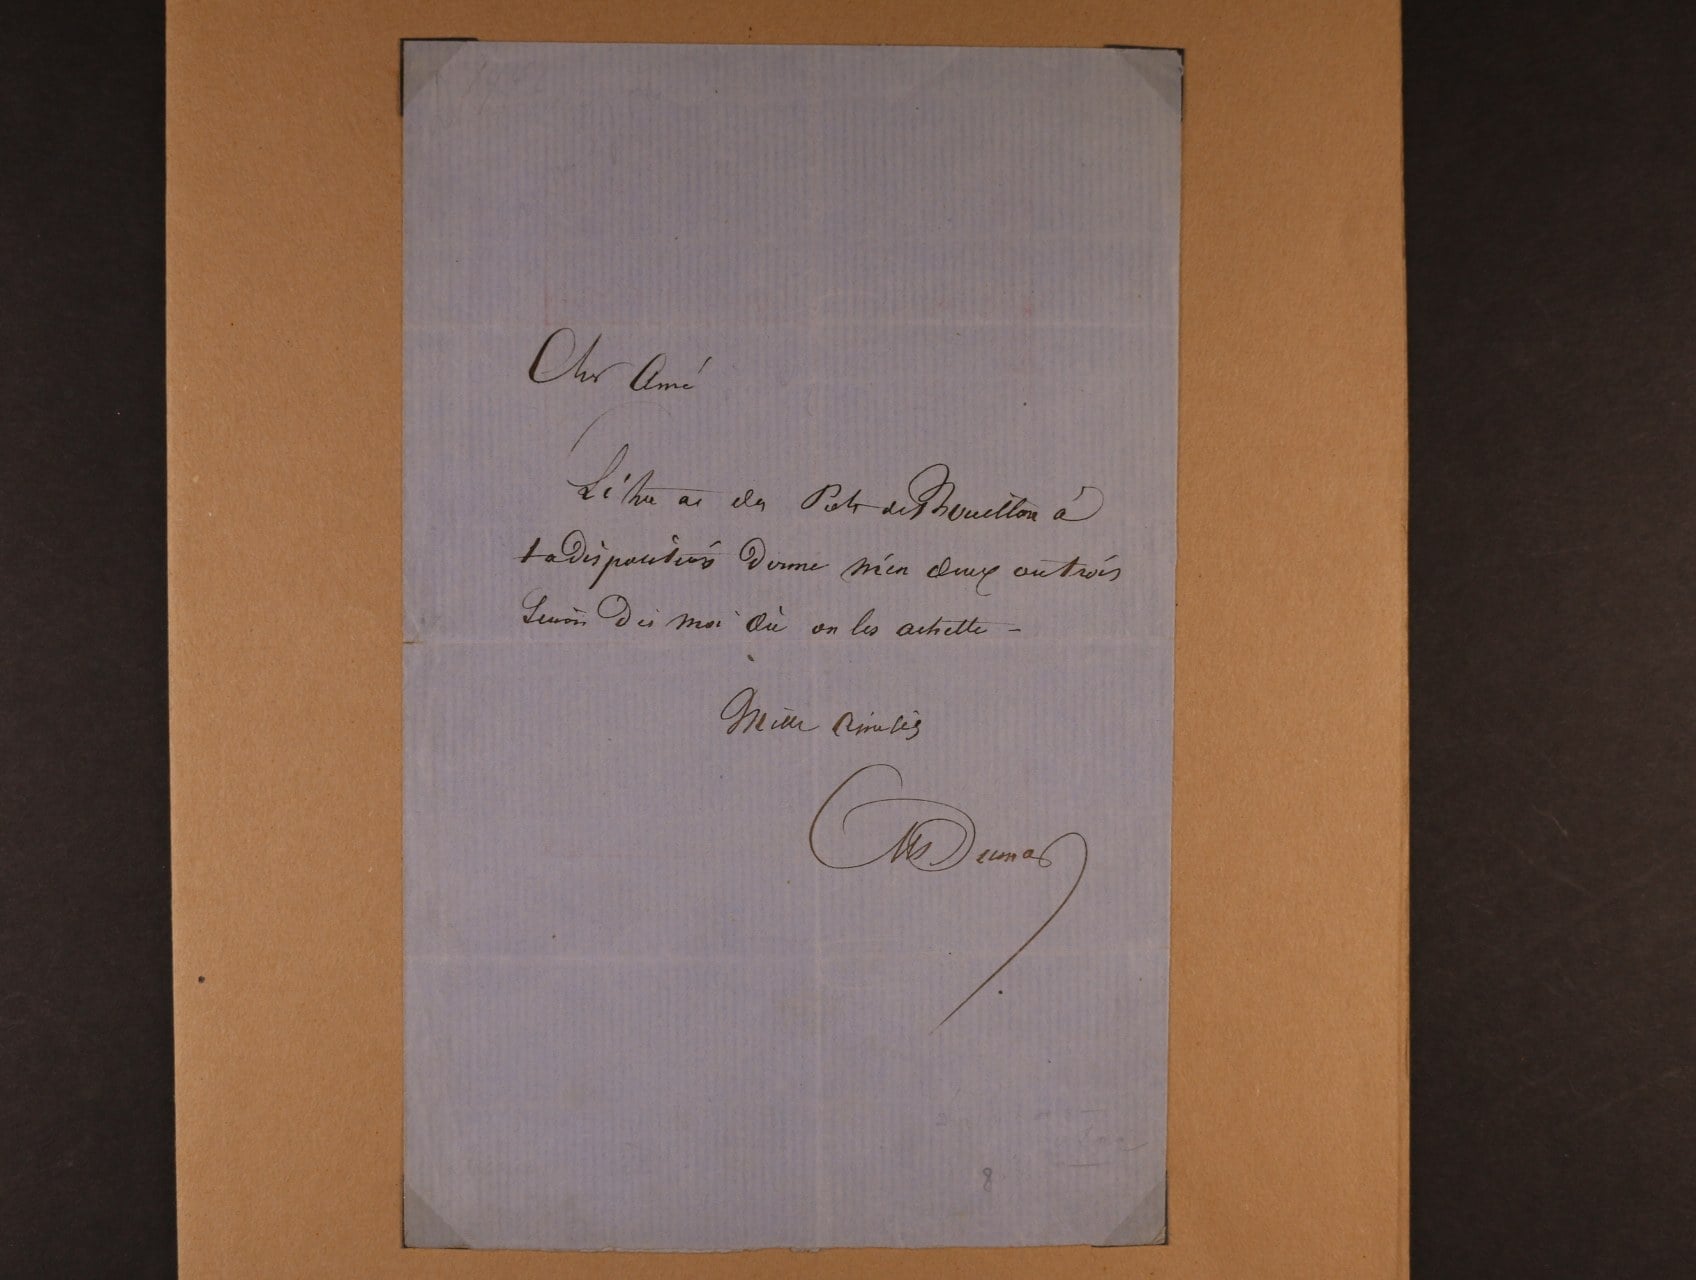 Cher Ami
Si tu as des Pots de Bouillon à
ta disposition donne m'en deux ou trois
Sinon dis moi où on les achette –
Mille Amitiés
Alex Dumas
8